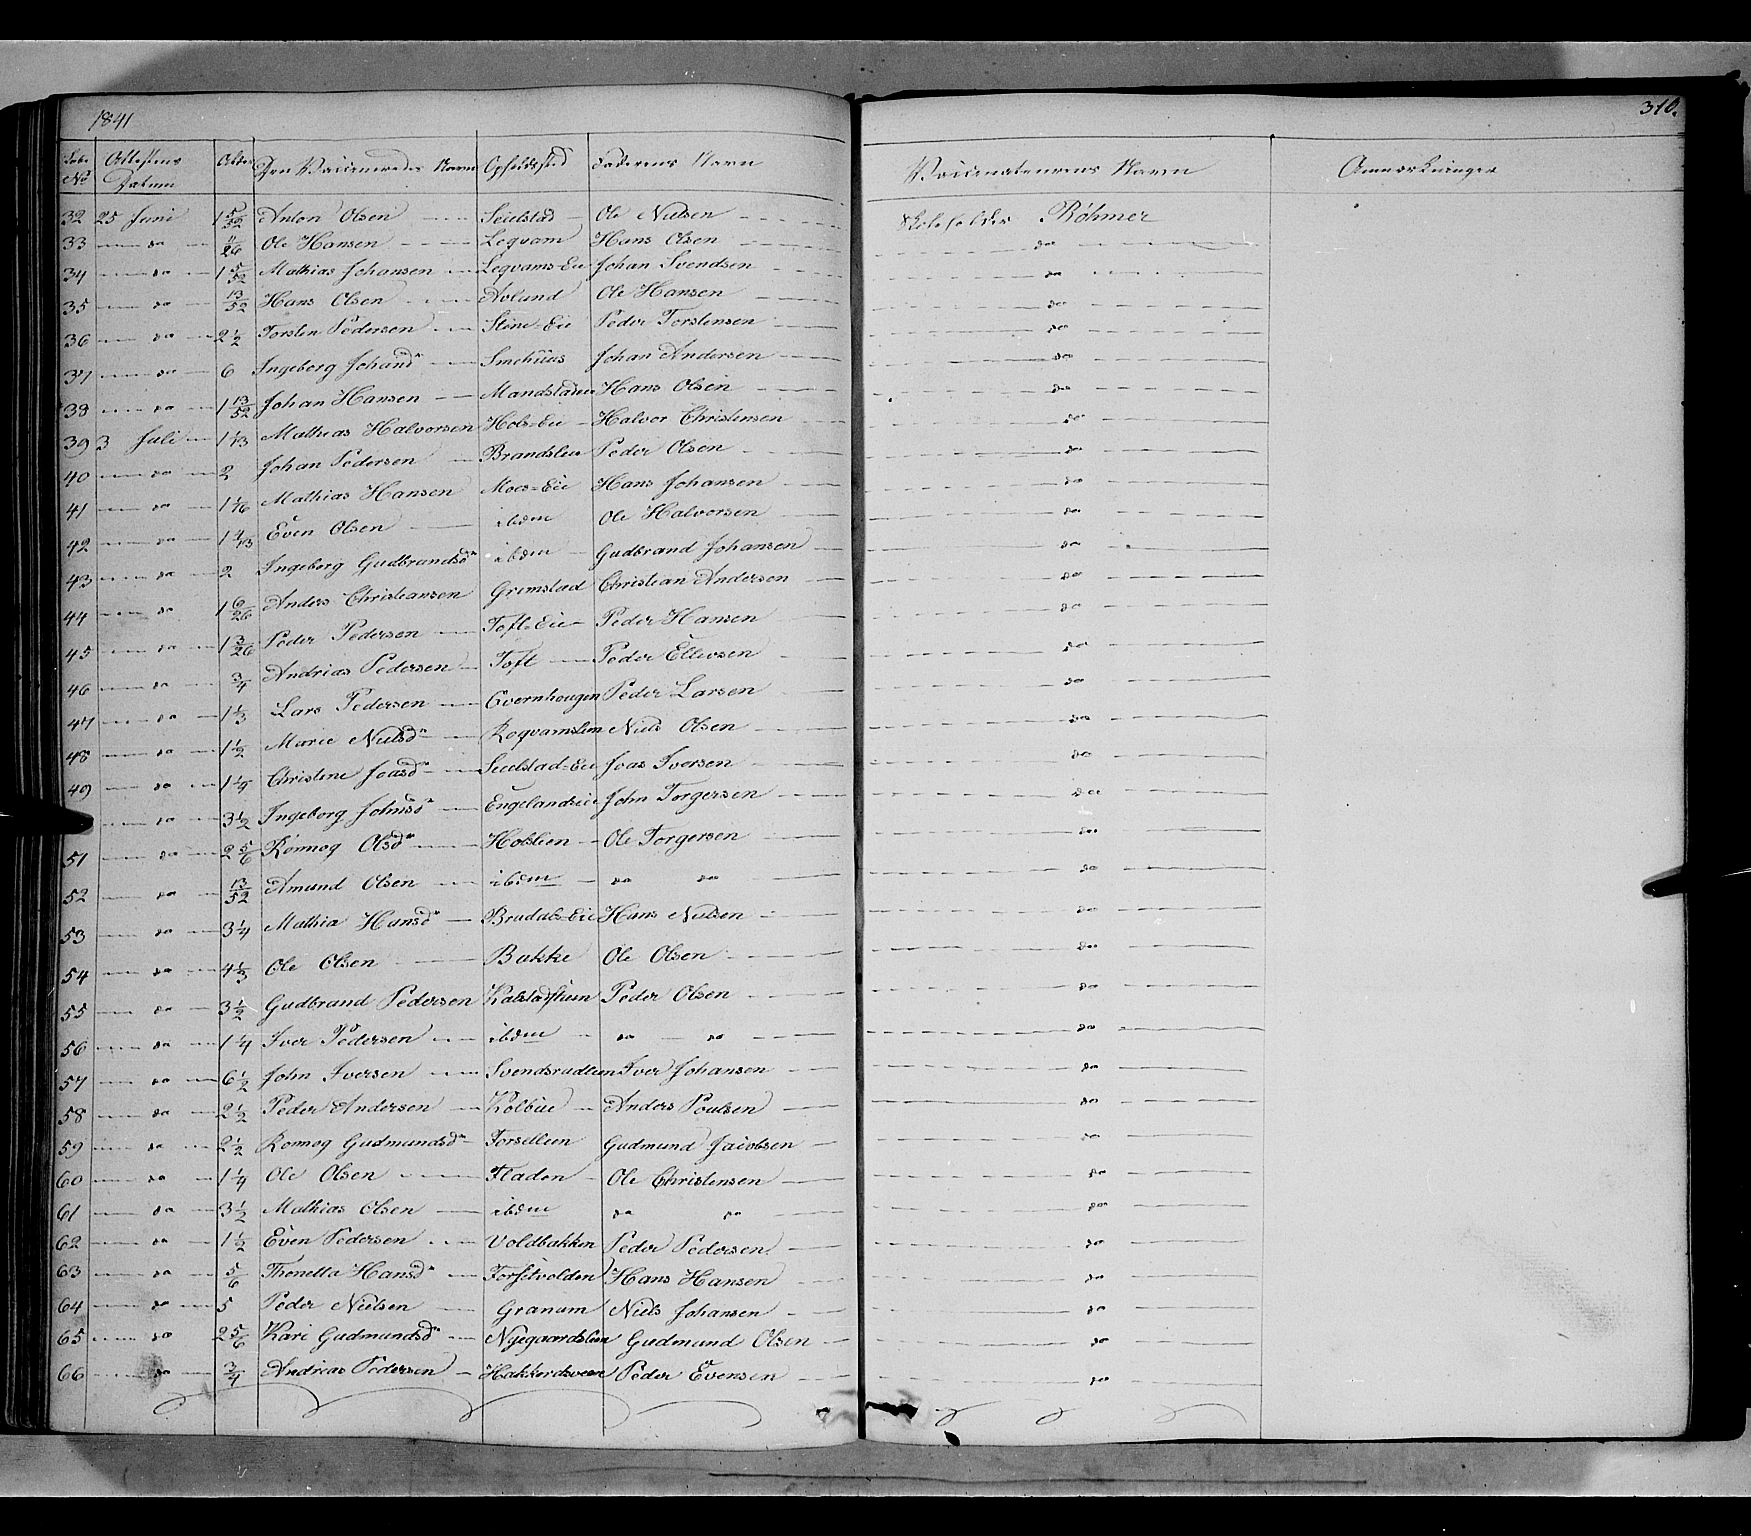 1841
310.
Løbe No Attestens Datum Alder Den Vaccineredes Navn Opholdsted Faderens Navn Vaccinateurens Navn Anmærkninger
32 25 Juni 1 5/52 Anton Olsen Seielstad Ole Nielsen Röhmer
33 do 11/26 Ole Hansen Leqvam Hans Olsen do
34 do 1 5/52 Mathias Johansen Leqvams-Eie Johan Svendsen do
35 do 13/52 Hans Olsen Avlund Ole Hansen do
36 do 2 1/2 Torsten Pedersen Stene-Eie Peder Torstensen do
37 do 6 Ingeborg Johansdr Smehuus Johan Andersen do
38 do 1 13/52 Johan Hansen Hans Olsen do
39 3 Juli 1 1/13 Mathias Halvorsen Hols-Eie Halvor Christensen do
40 do 2 Johan Pedersen Brandslien Peder Olsen do
41 do 1 1/6 Mathias Hansen Moes-Eie Hans Johansen do
42 do 1 4/13 Even Olsen ibdm Ole Halvorsen do
43 do 2 Ingeborg Gudbrandsdr ibdm Gudbrand Johansen do
44 do 1 6/26 Anders Christiansen Grimstad Christian Andersen do
45 do 1 3/26 Peder Pedersen Toft-Eie Peder Hansen do
46 do 3/4 Andrias Pedersen Toft Peder Ellevsen do
47 do 1 1/3 Lars Pedersen Qvernhougen Peder Larsen do
48 do 1 1/2 Marie Nielsdr Roqvamslien Niels Olsen do
49 do 1 1/4 Christine Joasdr Seielstad-Eie Joas Iversen do
do 3 1/2 Ingeborg Johnsdr Engelandseie John Torgersen do
51 do 2 5/6 Rønnog Olsdr Holslien Ole Torgersen do
52 do 13/52 Amund Olsen ibdm do do do
53 do 3 1/4 Mathia Hansdr Brudals-Eie Hans Nielsen do
54 do 4 1/3 Ole Olsen Bakke Ole Olsen do
55 do 3 1/2 Gudbrand Pedersen Kalstadstuen Peder Olsen do
56 do 1 1/4 Iver Pedersen ibdm do do do
57 do 6 1/2 John Iversen Svendsrudlien Iver Johansen do
58 do 2 1/2 Peder Andersen Kolbue Anders Poulsen do
59 do 2 1/2 Ronnog Gudmundsdr Forsetlien Gudmund Jacobsen do
60 do 1 1/4 Ole Olsen Fladen Ole Christensen do
61 do 3 1/2 Mathias Olsen ibdm do do do
62 do 1 1/2 Even Pedersen Voldbakken Peder Pedersen do
63 do 5/6 Thonetta Hansdr Forsetvolden Hans Hansen do
64 do 5 Peder Nielsen Granum Niels Johansen do
65 do 2 5/6 Kari Gudmundsdr Nygaardslien Gudmund Olsen do
66 do 3/4 Andrias Pedersen Peder Evensen do